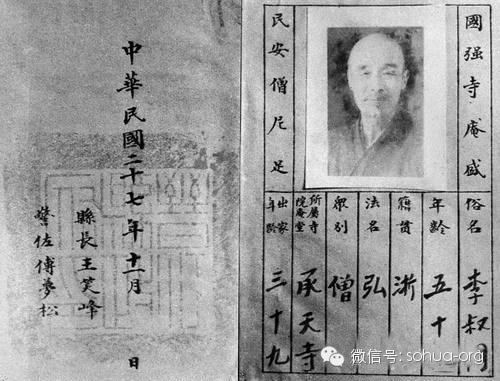 國强寺庵盛
民安僧尼足
俗名 李叔同
年齡 五十
籍貫 浙
法名 弘
眾別 僧
所屬寺院庵堂 承天寺
出家年齡 三十九
中華民國二十七年十一月 日
縣長王笑峰
警佐傅夢松
微信号: sohua-org